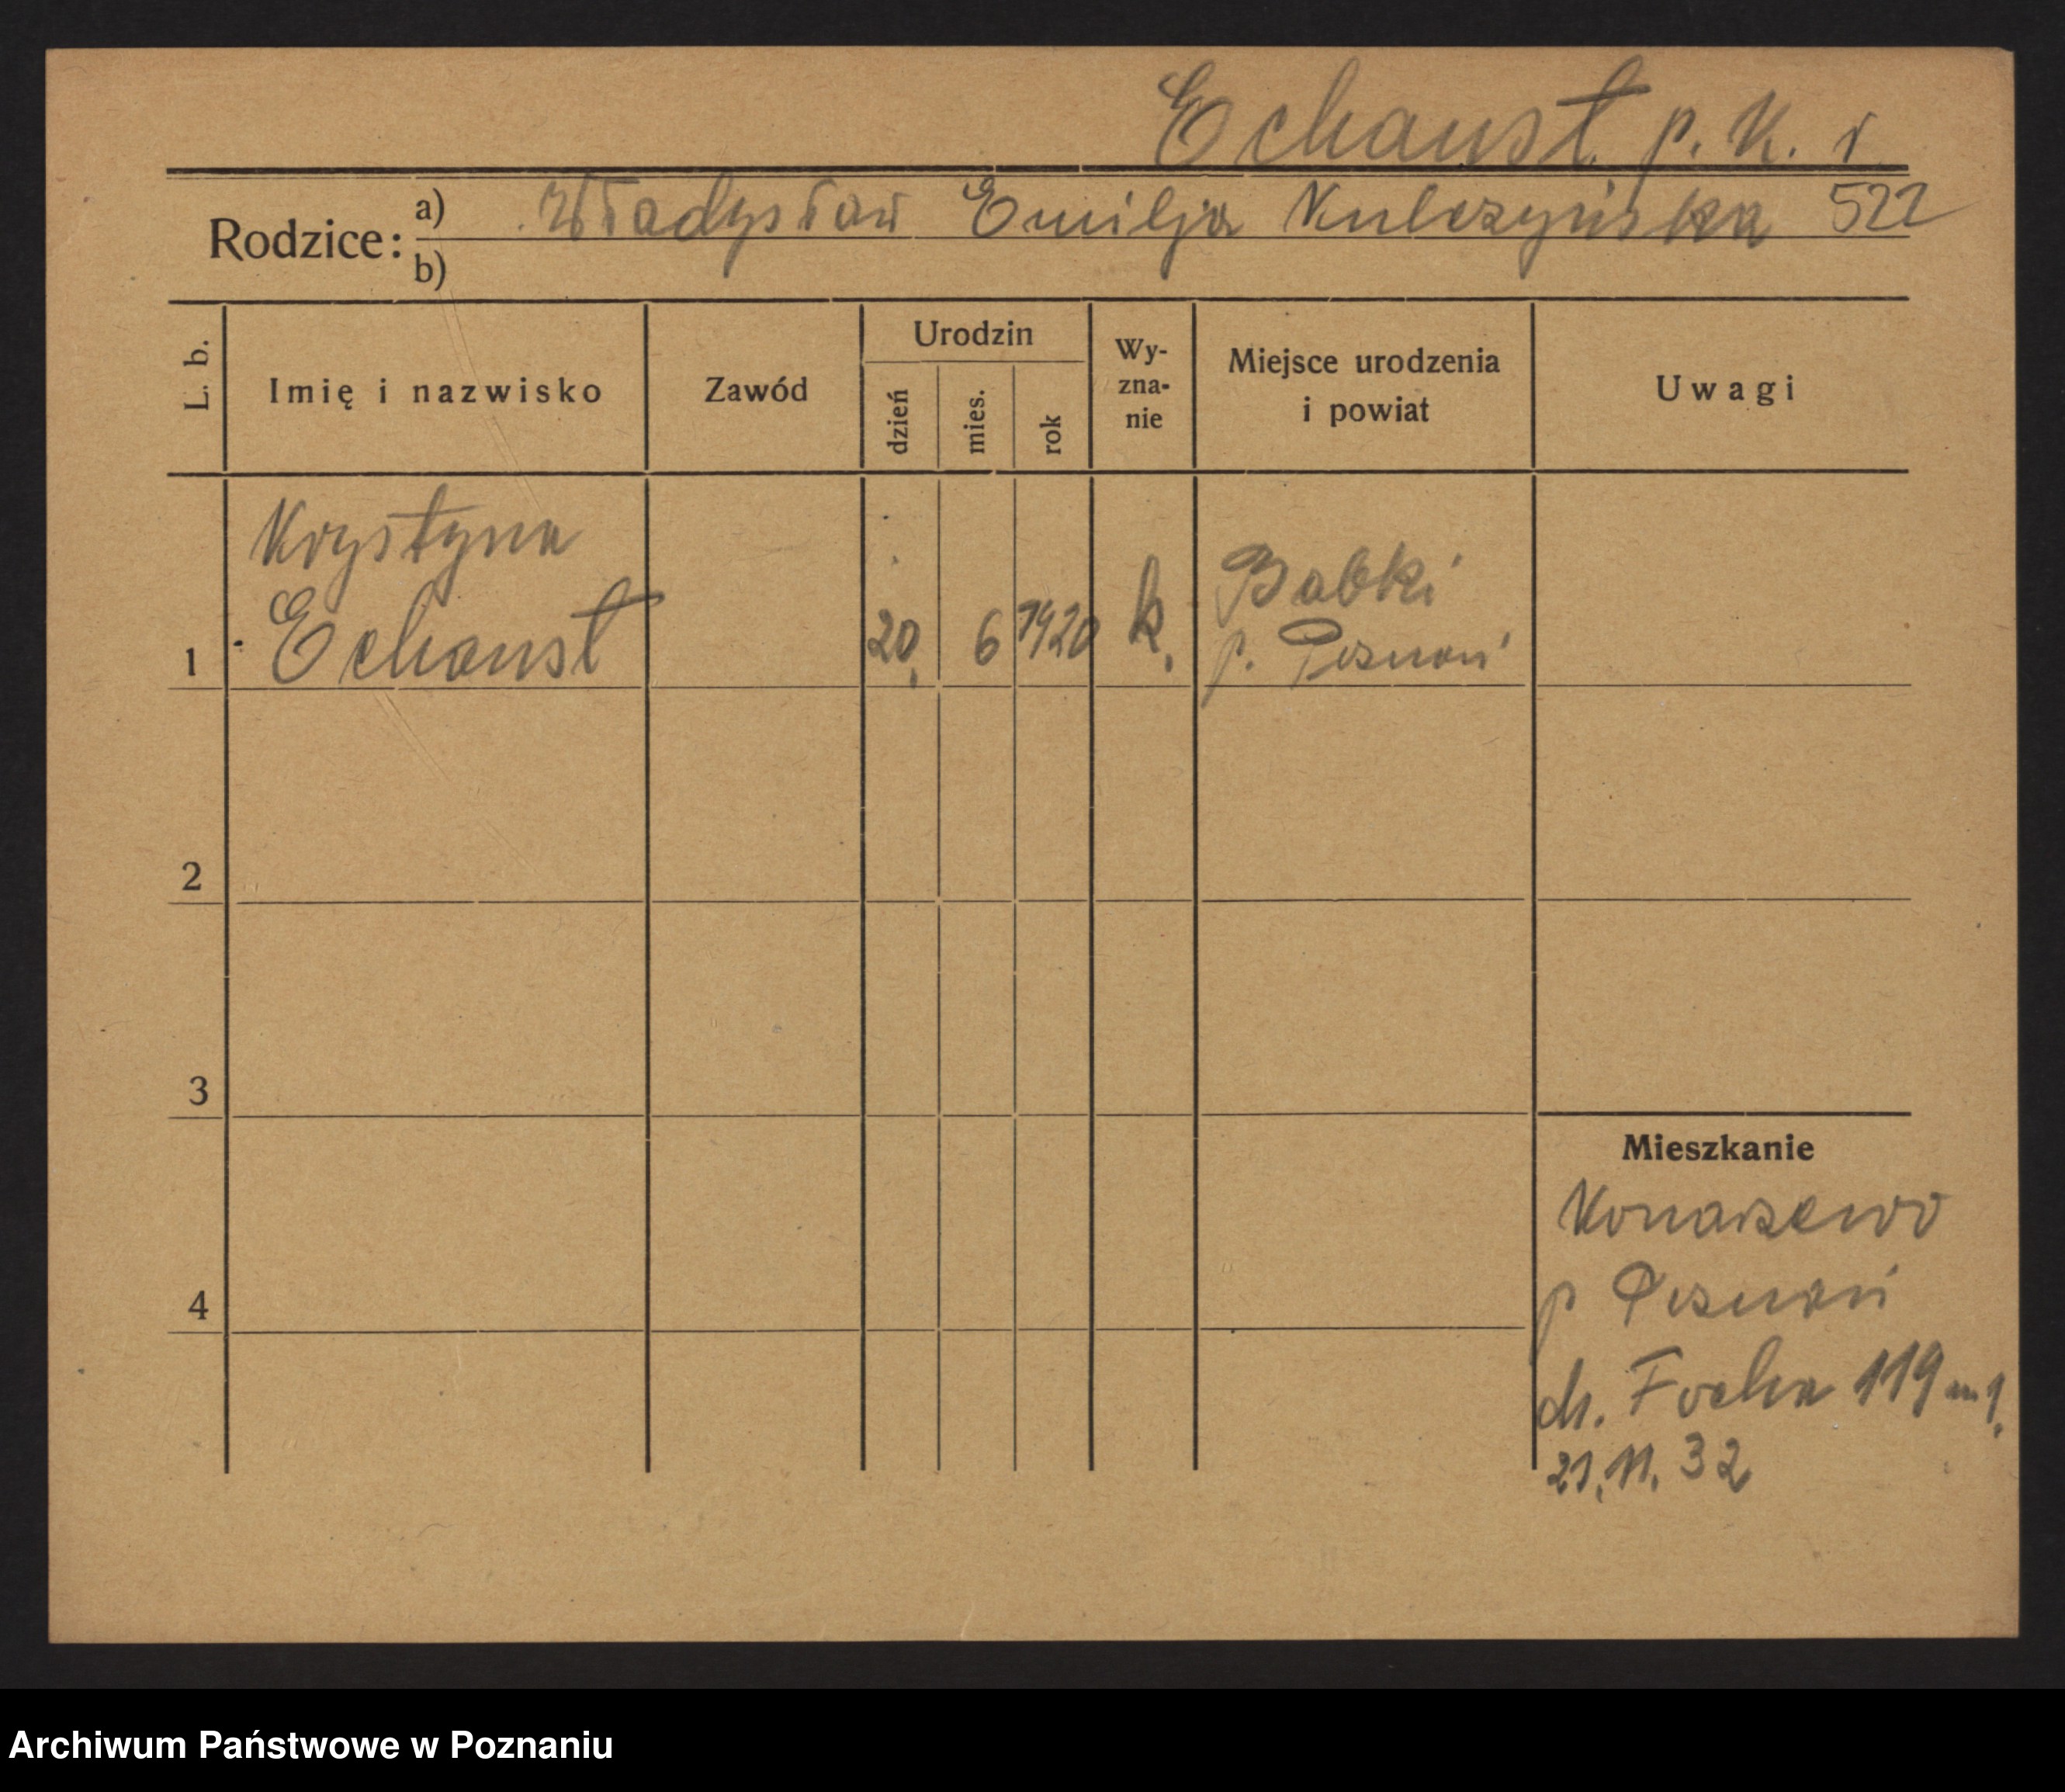 Echaust p. K. r
Rodzice:
a) Władysław Emilja Kulczyńska 522
b)
L. b.
Imię i nazwisko
Zawód
Urodzin
dzień
mies.
rok
Wy-
zna-
nie
Miejsce urodzenia
i powiat
Uwagi
Krystyna
Echaust
1
20. 6 1920 k.
Babki
p. Poznań
2
3
4
Mieszkanie
Konarzewo
p Poznań
Focha 119 m 1.
21.11.32
Archiwum Państwowe w Poznaniu